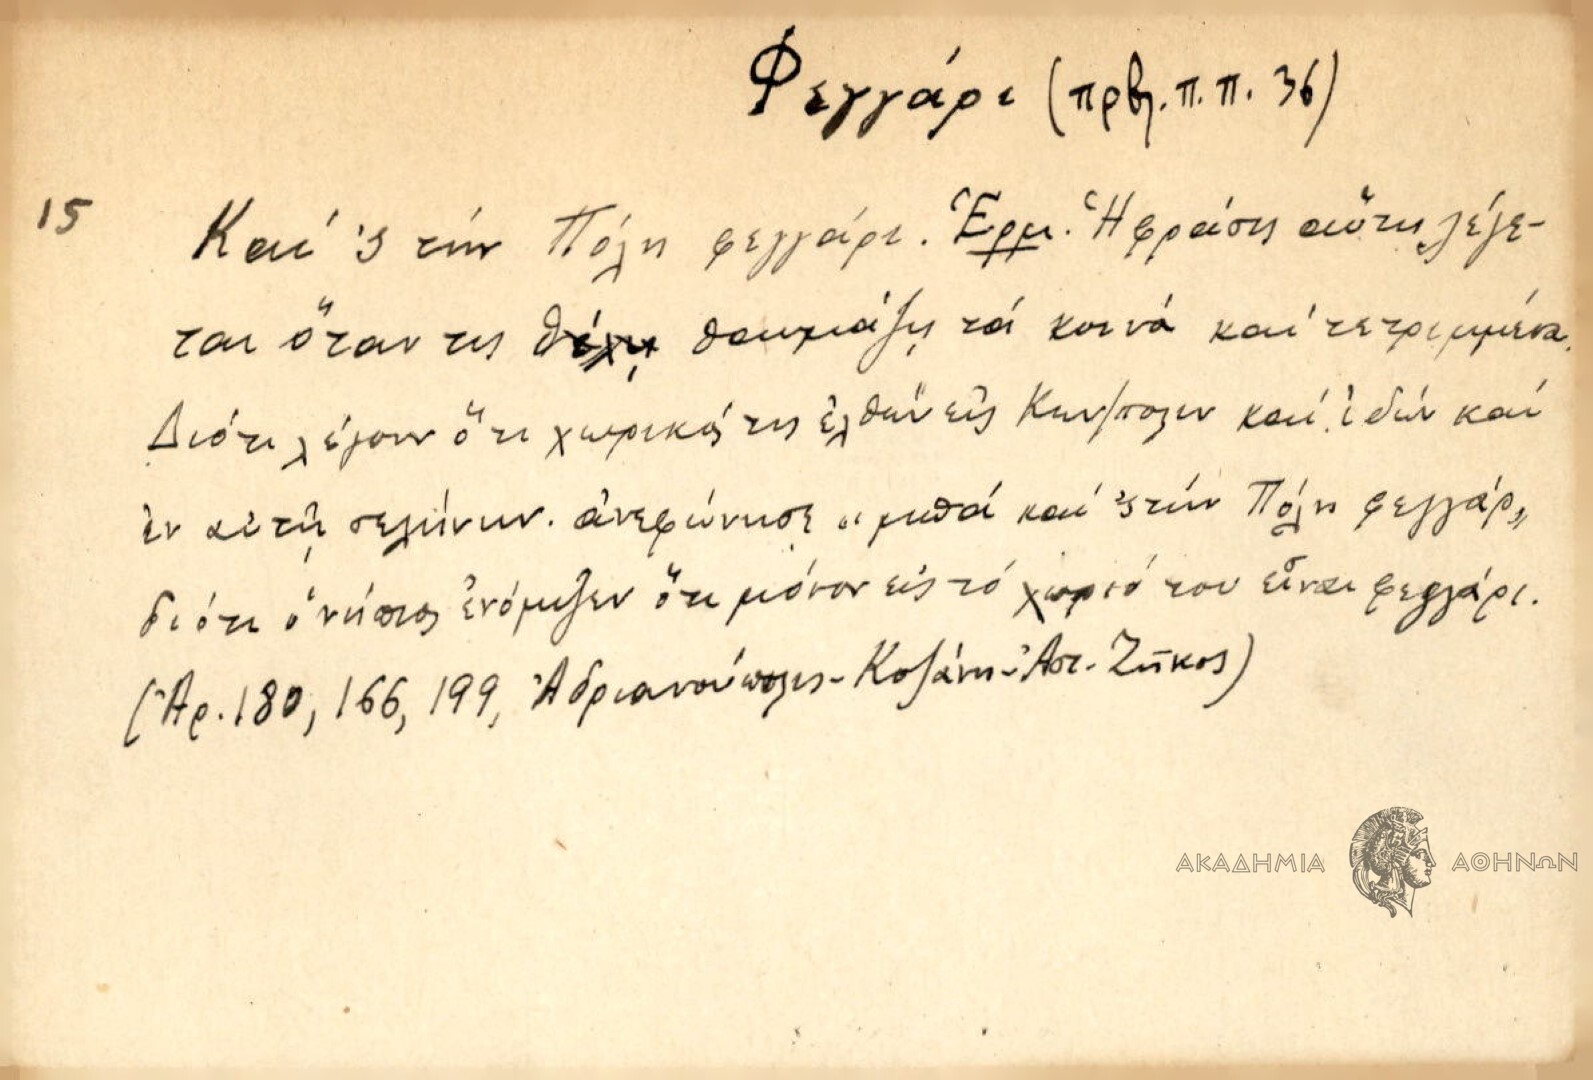 Φεγγάρι (πρβλ. π. π. 36)
15 Καί 'ς τήν Πόλη φεγγάρι. Ἑρμ. Ἡ φράσις αὕτη λέγε-
ται ὅταν τις θαυμάζῃ τά κοινά καί τετριμμένα.
Διότι λέγουν ὅτι χωρικός τις ἐλθών εἰς Κων/πολιν καί ἰδών καί
ἐν αὐτῇ σελήνην. ἀνεφώνησε „μπά καί 'ς τήν Πόλη φεγγάρ„
διότι ὁ νήπιος ἐνόμιζεν ὅτι μόνον εἰς τό χωριό του εἶναι φεγγάρι.
(Ἀρ. 180, 166, 199, Ἀδριανούπολις - Κοζάνη - Ἀστ. Ζῆκος)
ΑΚΑΔΗΜΙΑ ΑΘΗΝΩΝ